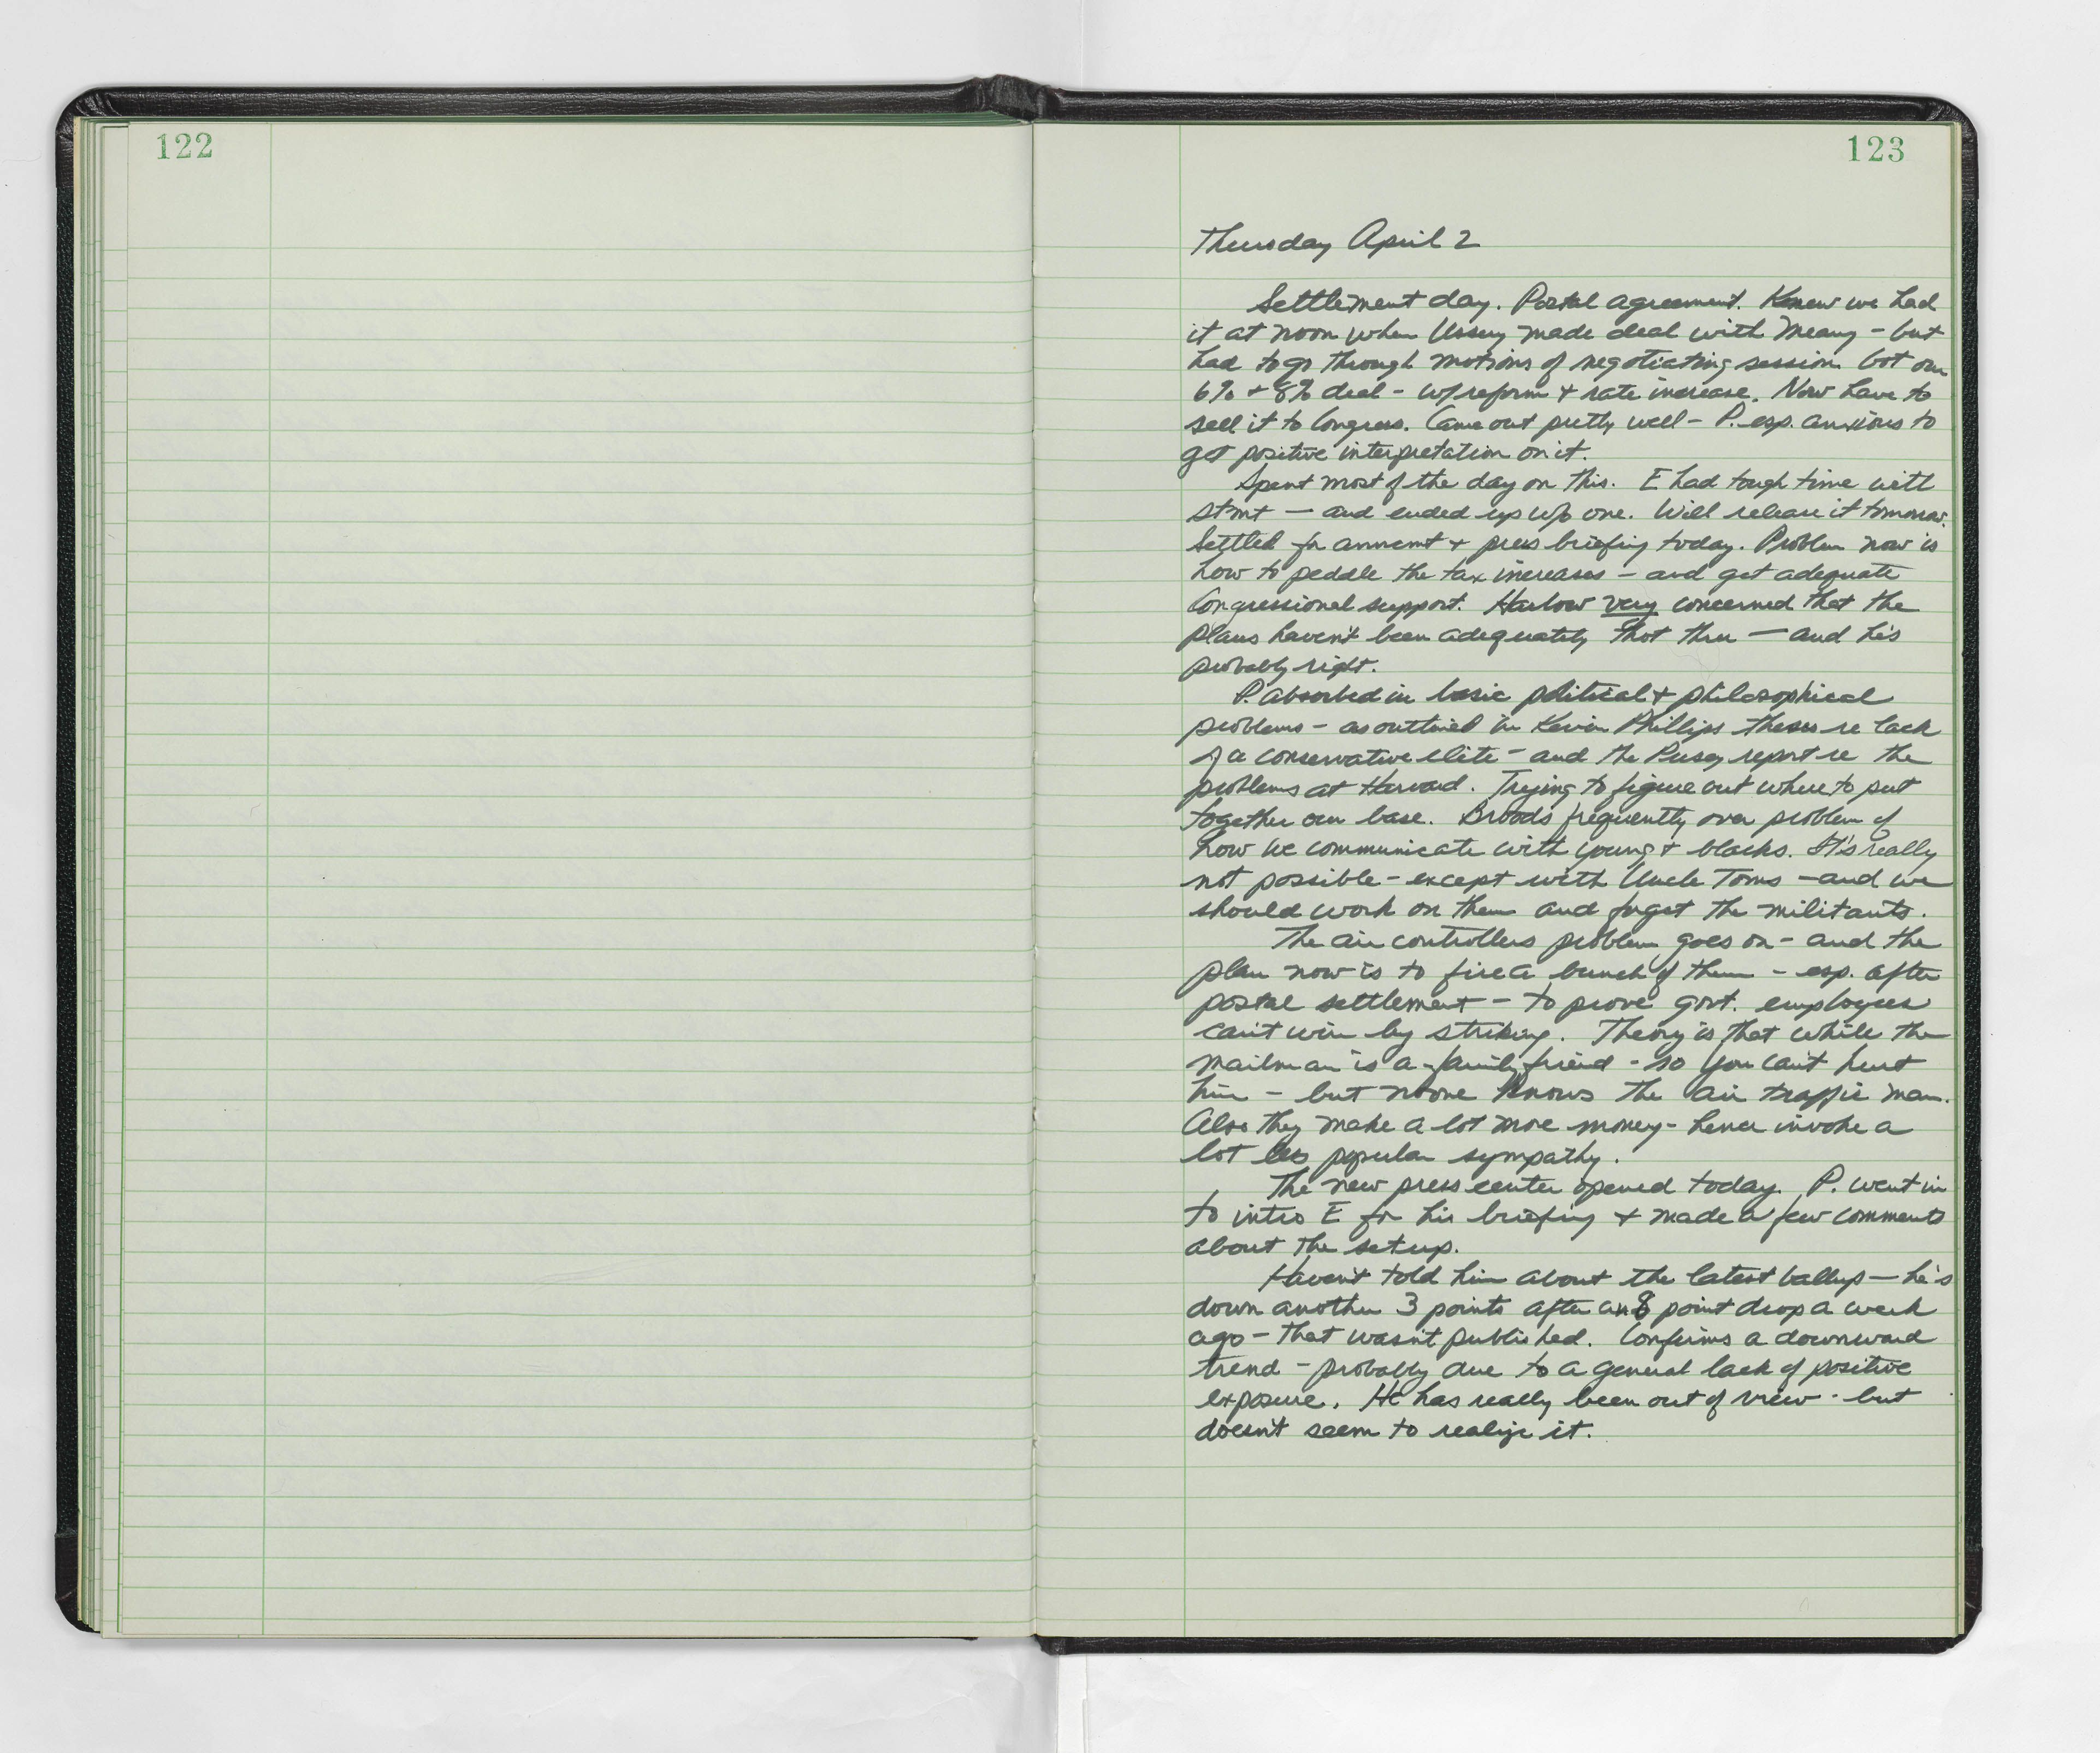 122
123
Thursday April 2
Settlement day. Postal agreement. Knew we had
it at noon when Ussery made deal with Meany - but
had to go through motions of negotiating session. Got our
6% + 8% deal - w/reform + rate increase. Now have to
sell it to Congress. Came out pretty well - P. esp. anxious to
get positive interpretation on it.
Spent most of the day on this. E had tough time with
stmt — and ended up w/o one. Will release it tomorrow.
Settled for anncmt + press briefing today. Problem now is
how to peddle the tax increases - and get adequate
Congressional support. Harlow very concerned that the
plans haven't been adequately thot thru — and he's
probably right.
P. absorbed in basic political + philosophical
problems - as outlined in Kevin Phillips theses re lack
of a conservative elite - and the Pusey report re the
problems at Harvard. Trying to figure out where to put
together our base. Broods frequently over problem of
how we communicate with young + blacks. It's really
not possible - except with Uncle Toms - and we
should work on them and forget the militants.
The air controllers problem goes on - and the
plan now is to fire a bunch of them - esp. after
postal settlement - to prove govt. employees
can't win by striking. Theory is that while the
mailman is a family friend - so you can't hurt
him - but noone knows the air traffic man.
Also they make a lot more money - hence invoke a
lot less popular sympathy.
The new press center opened today. P. went in
to intro E for his briefing + made a few comments
about the setup.
Haven't told him about the latest ballup — he's
down another 3 points after an 8 point drop a week
ago - that wasn't published. Confirms a downward
trend - probably due to a general lack of positive
exposure. He has really been out of view - but
doesn't seem to realize it.